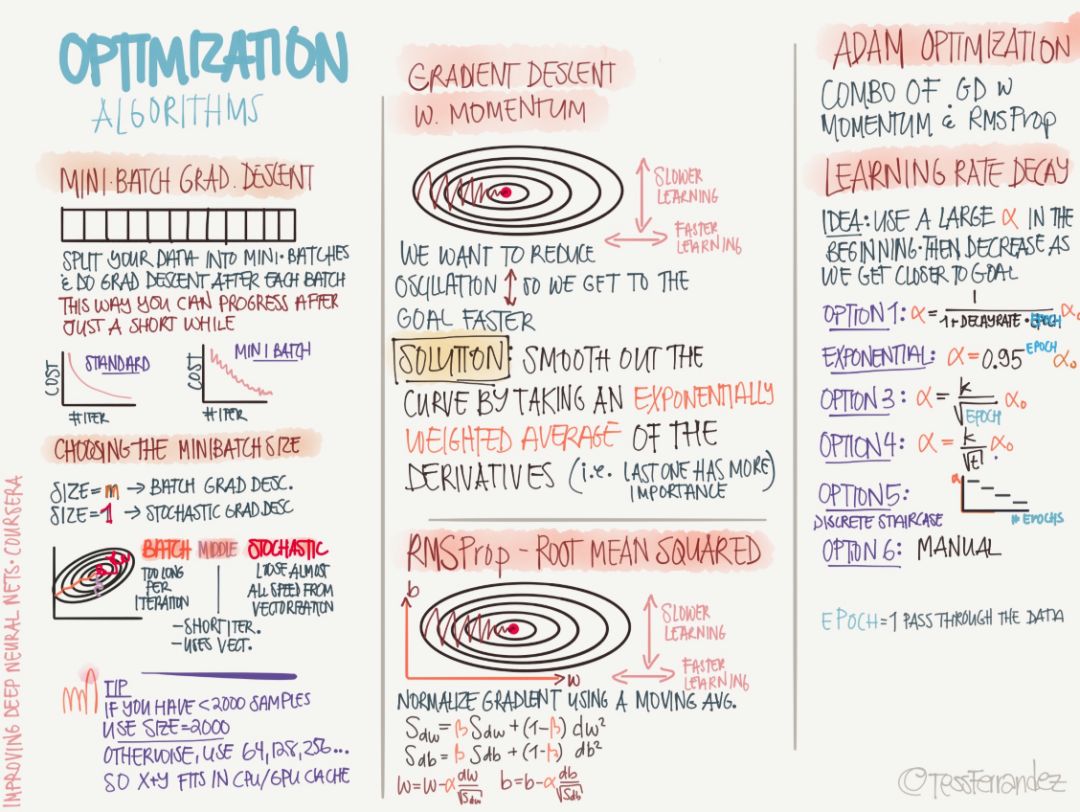 OPTIMIZATION
ALGORITHMS
MINI-BATCH GRAD. DESCENT
SPLIT YOUR DATA INTO MINI-BATCHES
& DO GRAD DESCENT AFTER EACH BATCH
THIS WAY YOU CAN PROGRESS AFTER
JUST A SHORT WHILE
COST
STANDARD
# ITER
COST
MINI BATCH
# ITER
CHOOSING THE MINIBATCH SIZE
SIZE = m → BATCH GRAD DESC.
SIZE = 1 → STOCHASTIC GRAD DESC
BATCH MIDDLE STOCHASTIC
TOO LONG
PER
ITERATION
LOSE ALMOST
ALL SPEED FROM
VECTORIZATION
- SHORT ITER.
- USES VECT.
TIP
IF YOU HAVE < 2000 SAMPLES
USE SIZE = 2000
OTHERWISE, USE 64, 128, 256...
SO X+Y FITS IN CPU/GPU CACHE
IMPROVING DEEP NEURAL NETS · COURSERA
GRADIENT DESCENT
W. MOMENTUM
SLOWER
LEARNING
FASTER
LEARNING
WE WANT TO REDUCE
OSCILLATION ↕ SO WE GET TO THE
GOAL FASTER
SOLUTION: SMOOTH OUT THE
CURVE BY TAKING AN EXPONENTIALLY
WEIGHTED AVERAGE OF THE
DERIVATIVES (i.e. LAST ONE HAS MORE
IMPORTANCE)
RMSProp - ROOT MEAN SQUARED
b
SLOWER
LEARNING
w
FASTER
LEARNING
NORMALIZE GRADIENT USING A MOVING AVG.
Sdw = β Sdw + (1-β) dw²
Sdb = β Sdb + (1-β) db²
w = w - α dw/√Sdw b = b - α db/√Sdb
ADAM OPTIMIZATION
COMBO OF GD W
MOMENTUM & RMSProp
LEARNING RATE DECAY
IDEA: USE A LARGE α IN THE
BEGINNING · THEN DECREASE AS
WE GET CLOSER TO GOAL
OPTION 1: α = 1/(1 + DECAYRATE · EPOCH) α₀
EXPONENTIAL: α = 0.95^EPOCH α₀
OPTION 3: α = k/√EPOCH α₀
OPTION 4: α = k/√t α₀
OPTION 5:
DISCRETE STAIRCASE
α
# EPOCHS
OPTION 6: MANUAL
EPOCH = 1 PASS THROUGH THE DATA
© TessFerrandez